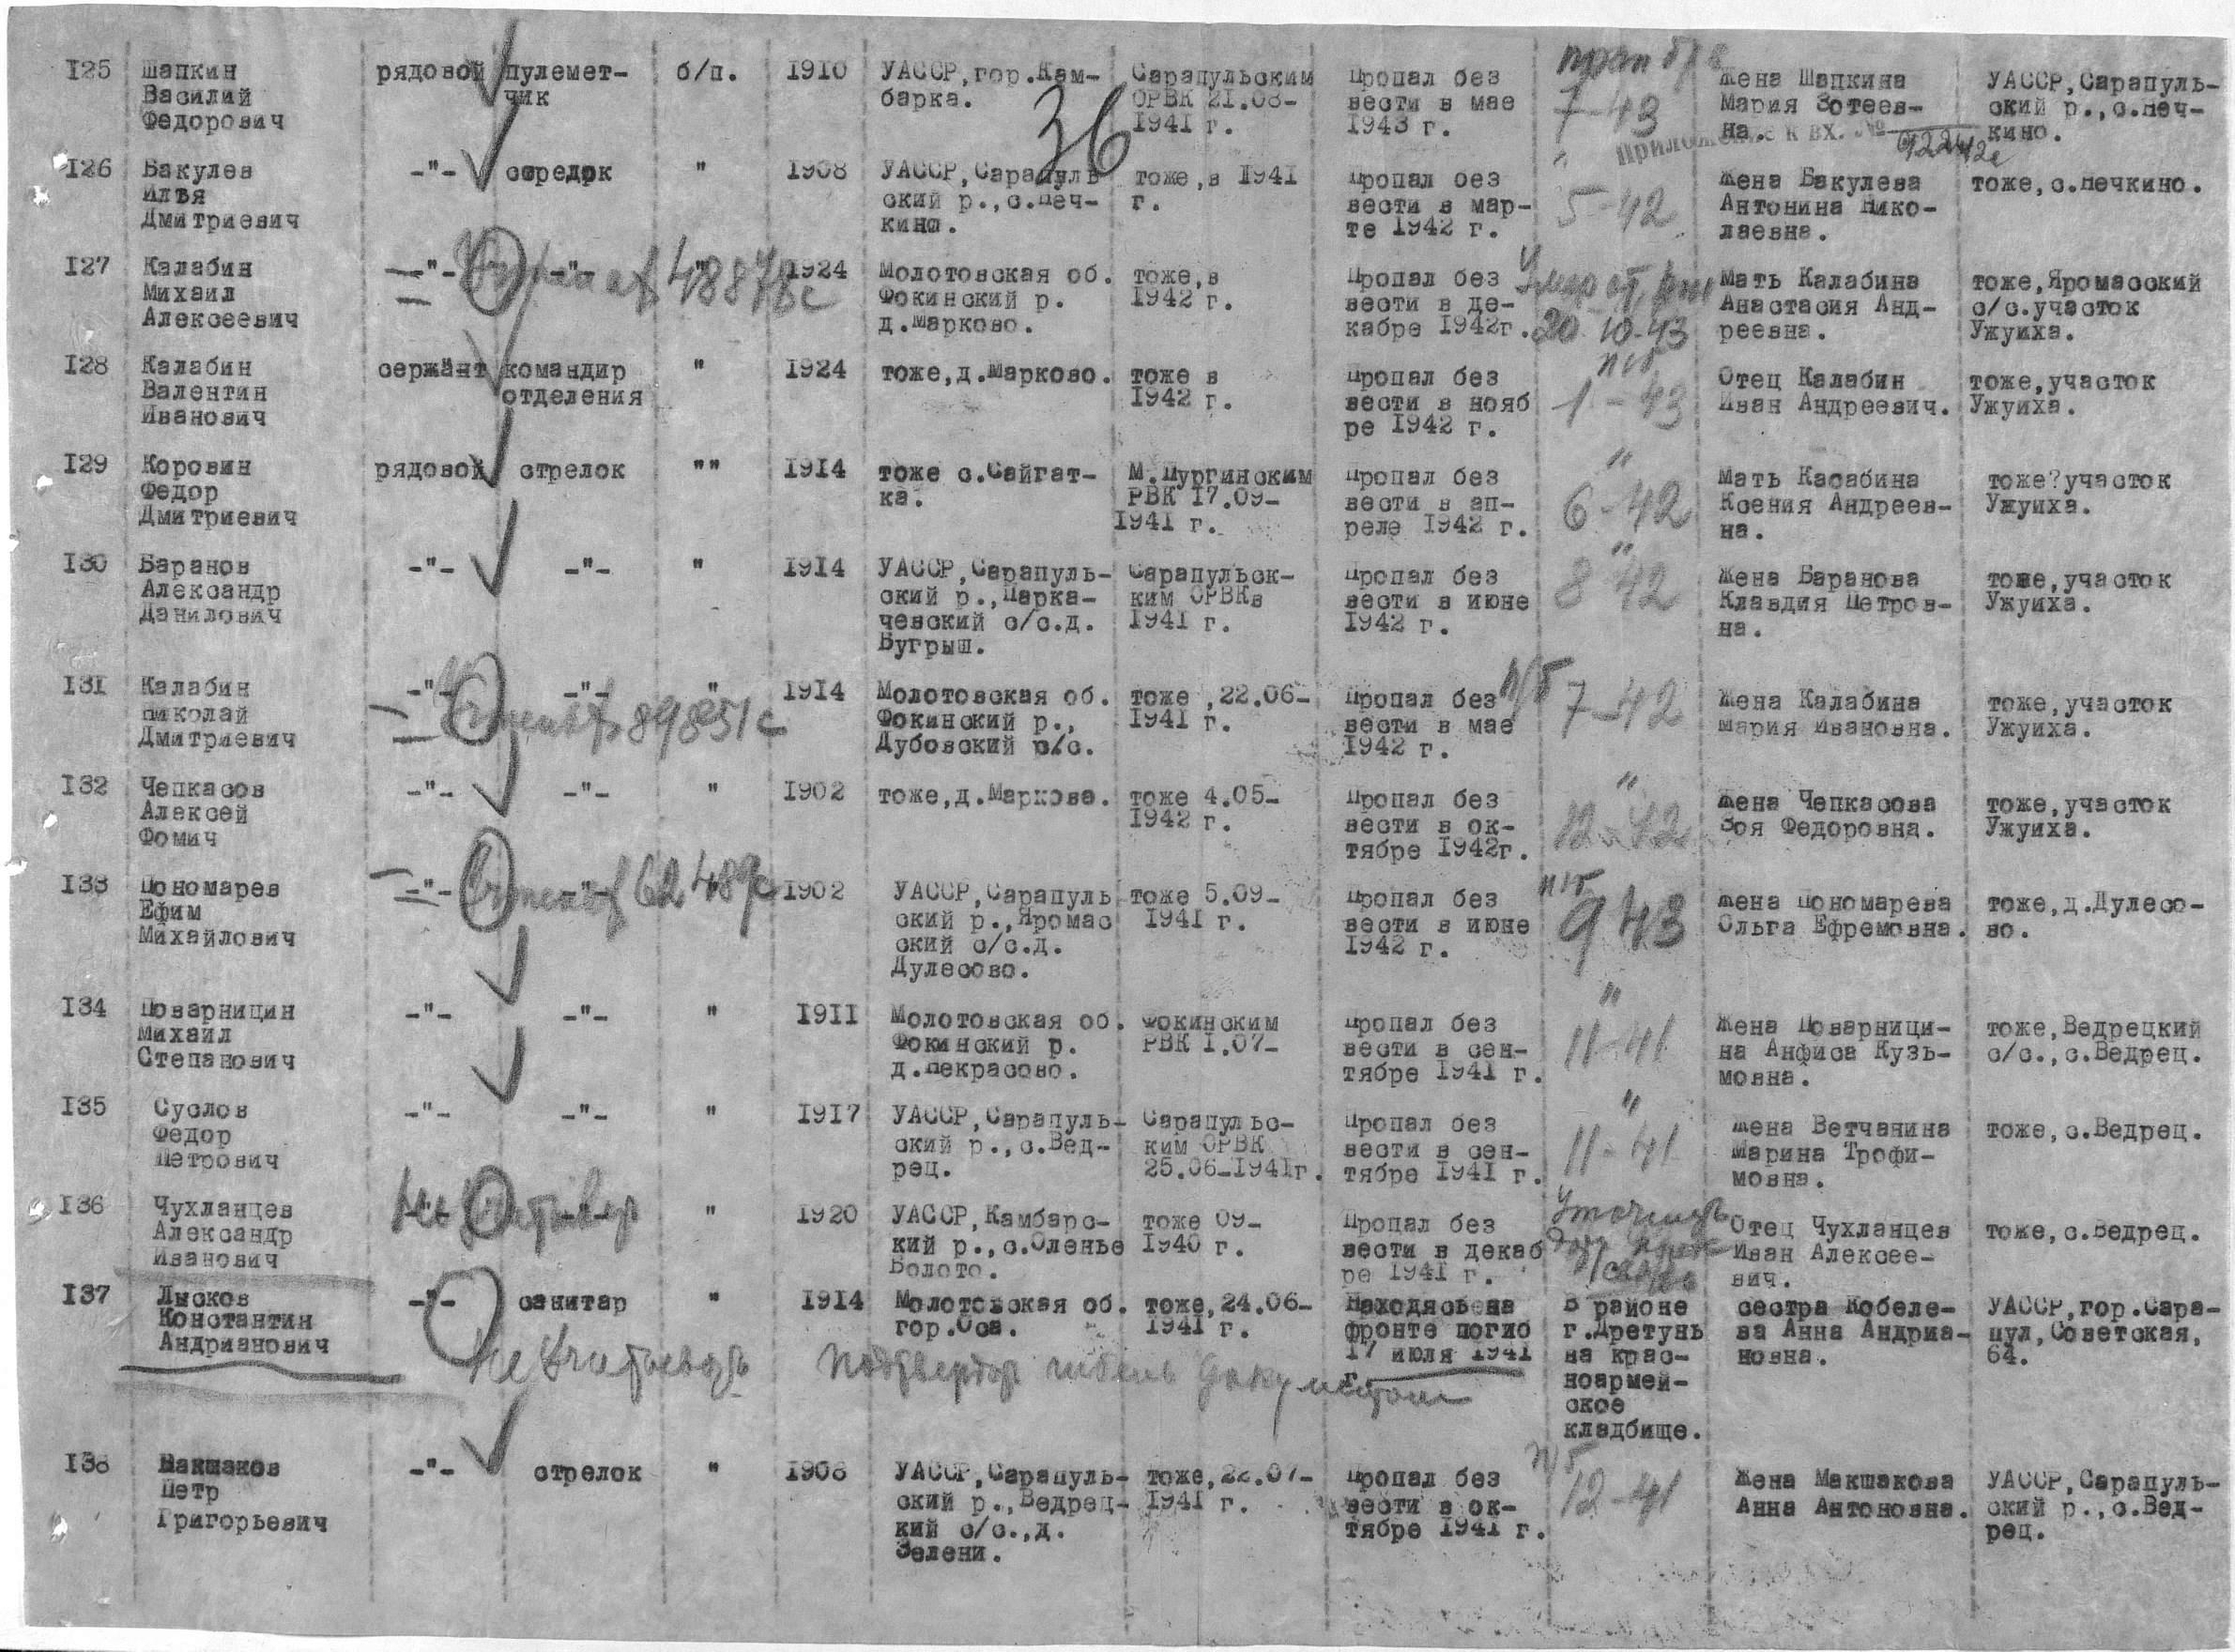 125 Шапкин Василий Федорович рядовой пулемет-чик б/п. 1910 УАССР,гор.Кам-барка. Сарапульским ОРВК 21.08-1941 г. Пропал без вести в мае 1943 г. 7-43 Жена Шапкина Мария Зотеев-на. УАССР,Сарапуль-ский р.,с.Неч-кино.
36
Приложение к вх. №
126 Бакулев Илья Дмитриевич -"- стрелок " 1908 УАССР,Сарапуль ский р.,с.Неч-кино. тоже,в 1941 г. Пропал без вести в мар-те 1942 г. " 5-42 Жена Бакулева Антонина Нико-лаевна. тоже,с.Нечкино.
127 Калабин Михаил Алексеевич -"- -"- " 1924 Молотовская об. Фокинский р. д.Марково. тоже,в 1942 г. Пропал без вести в де-кабре 1942г. Умер от ран 20.10.43 Мать Калабина Анастасия Анд-реевна. тоже,Яромасский с/с.участок Ужуиха.
48878с
128 Калабин Валентин Иванович сержант командир отделения " 1924 тоже,д.Марково. тоже в 1942 г. Пропал без вести в нояб ре 1942 г. п/б 1-43 Отец Калабин Иван Андреевич. тоже,участок Ужуиха.
129 Коровин Федор Дмитриевич рядовой стрелок "" 1914 тоже с.Сайгат-ка. М.Пургинским РВК 17.09-1941 г. Пропал без вести в ап-реле 1942 г. " 6-42 Мать Касабина Ксения Андреев-на. тоже?участок Ужуиха.
130 Баранов Александр Данилович -"- -"- " 1914 УАССР,Сарапуль-ский р.,Парка-чевский с/с.д. Бугрыш. Сарапульск-ким ОРВКв 1941 г. Пропал без вести в июне 1942 г. " 8-42 Жена Баранова Клавдия Петров-на. тоже,участок Ужуиха.
131 Калабин Николай Дмитриевич -"- -"- " 1914 Молотовская об. Фокинский р., Дубовский с/с. тоже ,22.06-1941 г. Пропал без вести в мае 1942 г. п/б 7-42 Жена Калабина Мария Ивановна. тоже,участок Ужуиха.
89851с
132 Чепкасов Алексей Фомич -"- -"- " 1902 тоже,д.Маркова. тоже 4.05-1942 г. Пропал без вести в ок-тябре 1942г. " 12-42 Жена Чепкасова Зоя Федоровна. тоже,участок Ужуиха.
133 Пономарев Ефим Михайлович -"- -"- 1902 УАССР,Сарапуль ский р.,Яромас ский с/с.д. Дулесово. тоже 5.09-1941 г. Пропал без вести в июне 1942 г. п/б 9 43 Жена Пономарева Ольга Ефремовна. тоже,д.Дулесо-во.
134 Поварницин Михаил Степанович -"- -"- " 1911 Молотовская об. Фокинский р. д.Некрасово. Фокинским РВК 1.07- Пропал без вести в сен-тябре 1941 г. " 11-41 Жена Поварници-на Анфиса Кузь-мовна. тоже,Ведрецкий с/с.,с.Ведрец.
135 Суслов Федор Петрович -"- -"- " 1917 УАССР,Сарапуль-ский р.,с.Вед-рец. Сарапульс-ким ОРВК 25.06-1941г. Пропал без вести в сен-тябре 1941 г. " 11-41 Жена Ветчанина Марина Трофи-мовна. тоже,с.Ведрец.
136 Чухланцев Александр Иванович " 1920 УАССР,Камбарс-кий р.,с.Оленье Болото. тоже 09-1940 г. Пропал без вести в декаб ре 1941 г. Отец Чухланцев Иван Алексее-вич. тоже,с.Ведрец.
137 Лысков Константин Андрианович -"- санитар " 1914 Молотовская об. гор.Оса. тоже,24.06-1941 г. Находясь на фронте погиб 17 июля 1941 г. В районе г.Дретунь на крас-ноармей-ское кладбище. сестра Кобеле-ва Анна Андриа-новна. УАССР,гор.Сара-пул,Советская, 64.
не учитывать
138 Макшаков Петр Григорьевич -"- стрелок " 1908 УАССР,Сарапуль-ский р.,Ведрец-кий с/с.,д. Зелени. тоже,22.07-1941 г. Пропал без вести в ок-тябре 1941 г. п/б 12-41 Жена Макшакова Анна Антоновна. УАССР,Сарапуль-ский р.,с.Вед-рец.